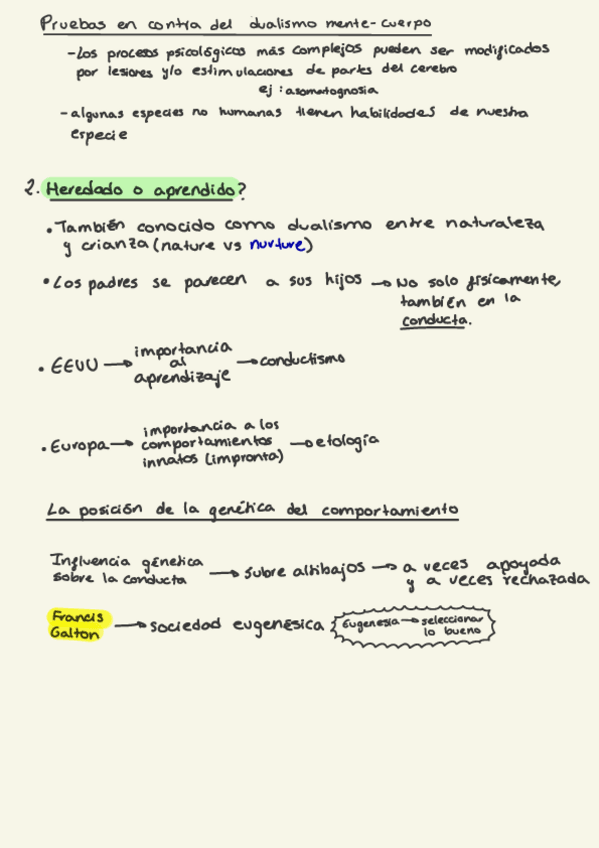 Pruebas en contra del dualismo mente-cuerpo
- Los procesos psicológicos más complejos pueden ser modificados
por lesiones y/o estimulaciones de partes del cerebro
ej: asomatognosia
- algunas especies no humanas tienen habilidades de nuestra
especie
2. Heredado o aprendido?
• También conocido como dualismo entre naturaleza
y crianza (nature vs nurture)
• Los padres se parecen a sus hijos → No solo físicamente,
también en la
conducta.
• EEUU → importancia
al
aprendizaje → conductismo
• Europa → importancia a los
comportamientos
innatos (impronta) → etología
La posición de la genética del comportamiento
Influencia génetica
sobre la conducta → subre altibajos → a veces apoyada
y a veces rechazada
Francis
Galton → sociedad eugenésica
Eugenesia → seleccionar
lo bueno